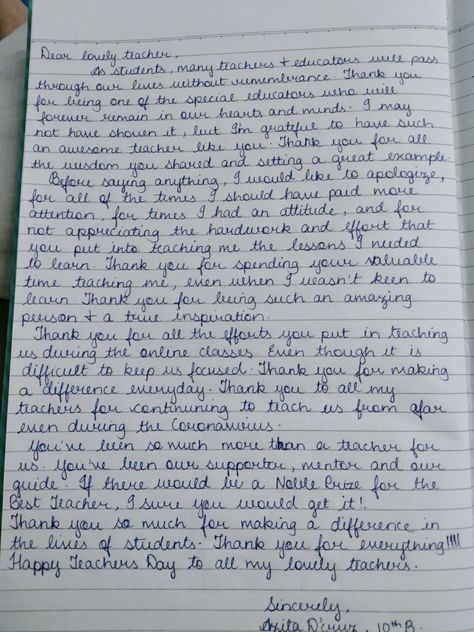 Dear lovely teacher,
As students, many teachers + educators will pass
through our lives without remembrance. Thank you
for being one of the special educators who will
forever remain in our hearts and minds. I may
not have shown it, but I'm grateful to have such
an awesome teacher like you. Thank you for all
the wisdom you shared and setting a great example.
Before saying anything, I would like to apologize,
for all of the times I should have paid more
attention, for times I had an attitude, and for
not appreciating the hardwork and effort that
you put into teaching me the lessons I needed
to learn. Thank you for spending your valuable
time teaching me, even when I wasn't keen to
learn. Thank you for being such an amazing
person + a true inspiration.
Thank you for all the efforts you put in teaching
us during the online classes. Even though it is
difficult to keep us focused. Thank you for making
a difference everyday. Thank you to all my
teachers for continuning to teach us from afar
even during the Coronavirus.
You've been so much more than a teacher for
us. You've been our supporter, mentor and our
guide. If there would be a Noble Prize for the
Best Teacher, I sure you would get it!.
Thank you so much for making a difference in
the lives of students. Thank you for everything!!!!
Happy Teachers Day to all my lovely teachers.
Sincerely,
D'cruz, 10th B.